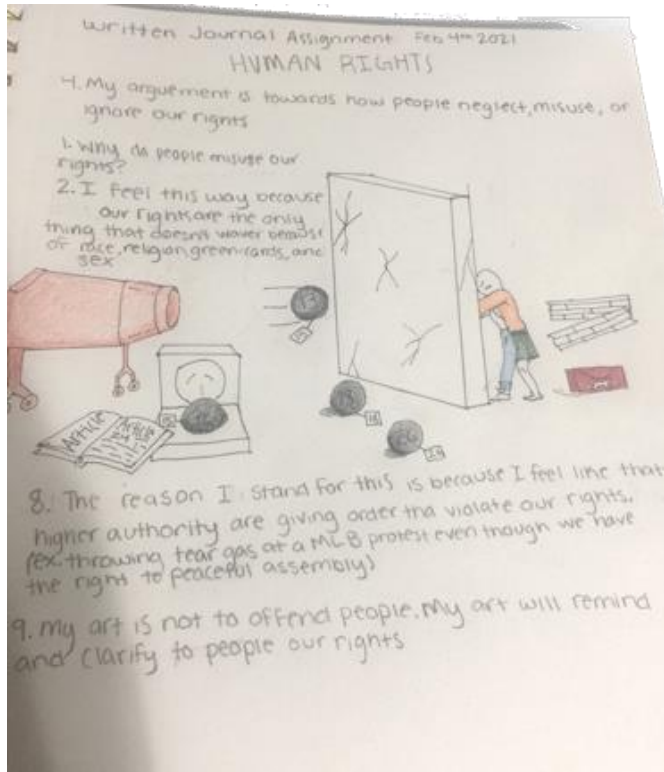 Written Journal Assignment Feb 4th 2021
HUMAN RIGHTS
4. My arguement is towards how people neglect, misuse, or
ignore our rights
1. Why do people misuse our
rights?
2. I feel this way because
our rights are the only
thing that doesn't waver because
of race, religion, green-cards, and
sex
13
Article
Article
8. The reason I stand for this is because I feel line that
higher authority are giving order tha violate our rights.
(ex throwing tear gas at a MLB protest even though we have
the right to peaceful assembly)
9. my art is not to offend people. My art will remind
and clarify to people our rights